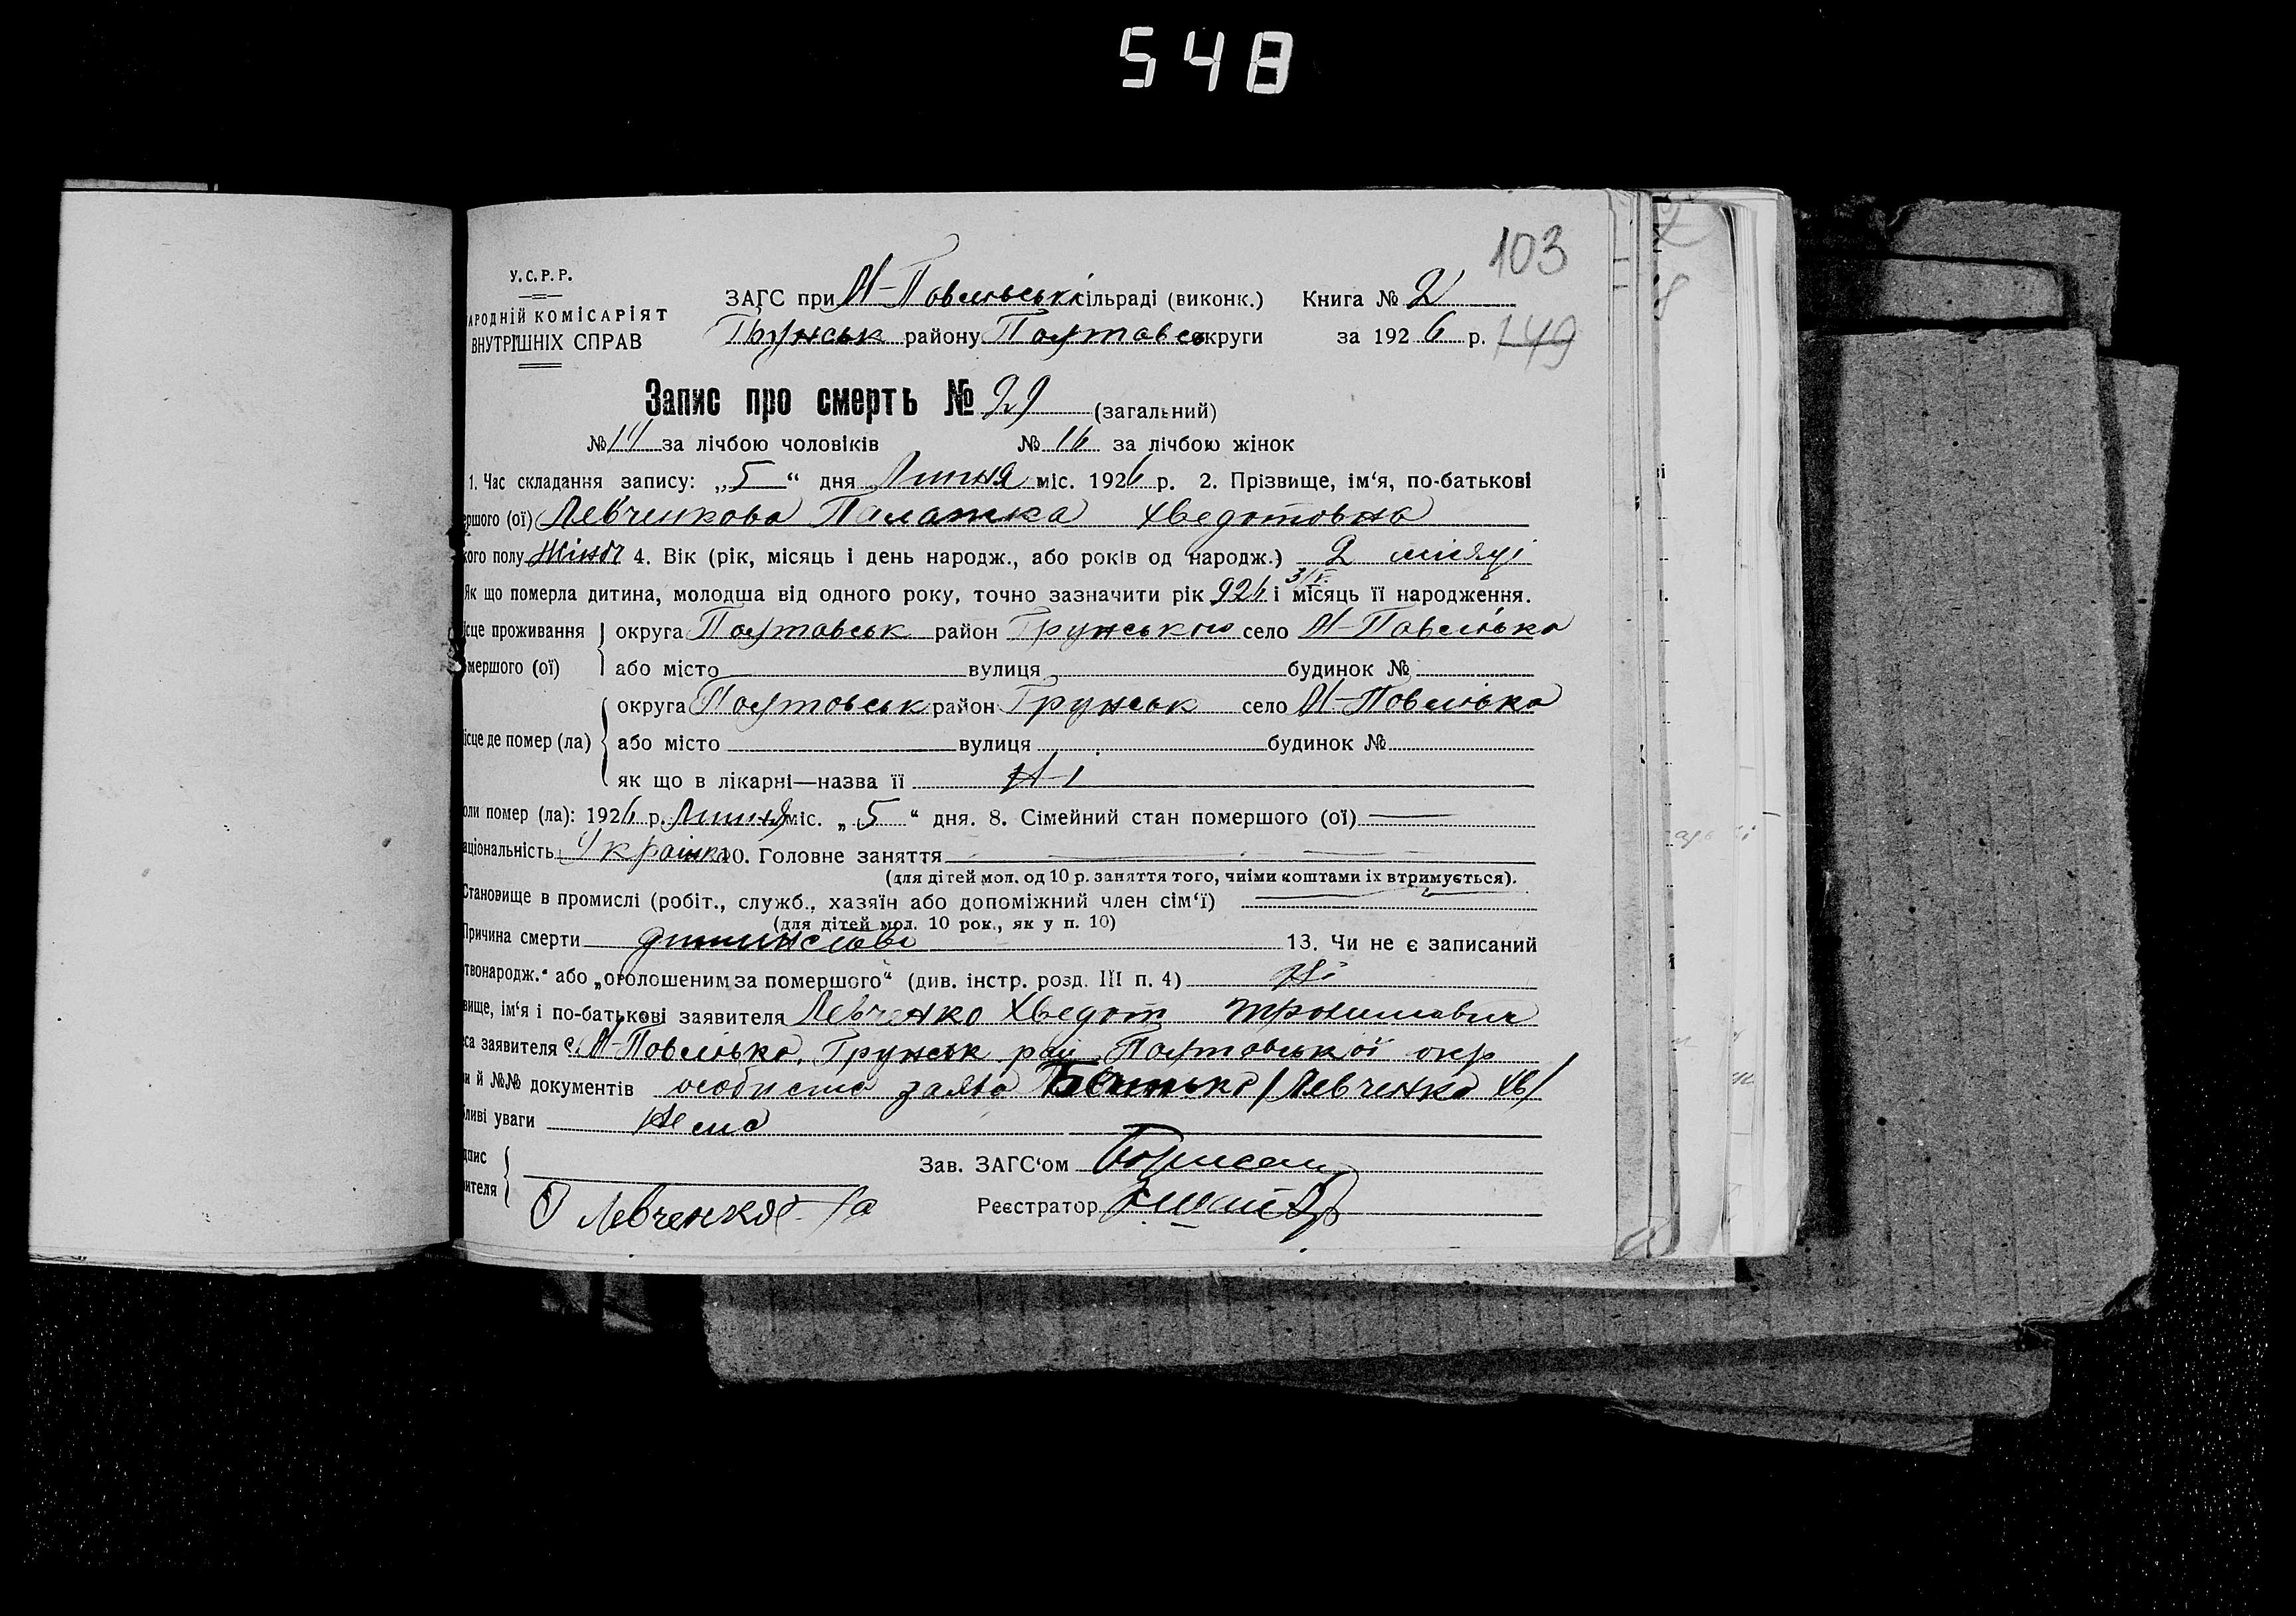 548
103
У.С.Р.Р.
АРОДНІЙ КОМІСАРІЯТ
ВНУТРІШНІХ СПРАВ
ЗАГС при сільраді (виконк.) Книга № 2
Грунськ району Полтавсь округи за 1926 р. 149
Запис про смерть № 29 (загальний)
№ за лічбою чоловіків № 16 за лічбою жінок
1. Час складання запису: „5“ дня Липня міс. 1926 р. 2. Прізвище, ім‘я, по-батькові
ершого (ої) Левченкова Палажка Хведотовна
кого полу Жіноч 4. Вік (рік, місяць і день народж., або років од народж.) 2 місяці
Як що померла дитина, молодша від одного року, точно зазначити рік 926 і місяць її народження.
ісце проживання округа Полтавськ район Грунського село
мершого (ої) або місто вулиця будинок №
округа Полтовськ район Грунськ село
ісце де помер (ла) або місто вулиця будинок №
як що в лікарні—назва її Н-і
оли помер (ла): 1926 р. Липня міс. „5“ дня. 8. Сімейний стан помершого (ої) —
аціональність Українка 10. Головне заняття —
(для дітей мол. од 10 р. заняття того, чиїми коштами їх втримується).
Становище в промислі (робіт., служб., хазяїн або допоміжний член сім‘ї)
(для дітей мол. 10 рок., як у п. 10)
Причина смерти 13. Чи не є записаний
твонародж.“ або „оголошеним за помершого“ (див. інстр. розд. III п. 4) Ні
вище, ім‘я і по-батькові заявителя Левченко Хведот
са заявителя с. Грунськ рай Полтовської окр
и й №№ документів особиста заява Батька /Левченка Хв/
ливі уваги Нема
дпис Зав. ЗАГС‘ом
ителя Левченко Реєстратор